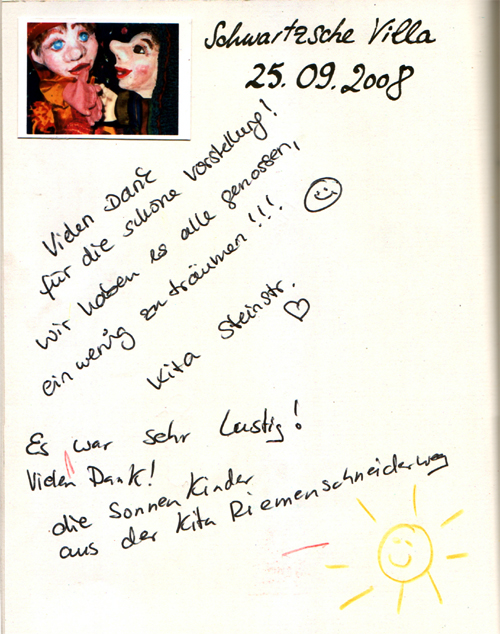 Schwartzsche Villa
25.09.2008
Vielen Dank
für die schöne Vorstellung!
Wir haben es alle genossen,
ein wenig zu träumen!!!
Kita Steinstr.
Es war sehr Lustig!
Vielen Dank!
die Sonnenkinder
aus der Kita Riemenschneiderweg